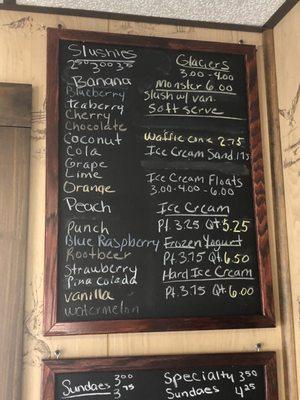 Slushies
2.50 3.00 3.75
Banana
Blueberry
teaberry
Cherry
Chocolate
Coconut
Cola
Grape
Lime
Orange
Peach
Punch
Blue Raspberry
Rootbeer
Strawberry
Pina Colada
vanilla
watermelon
Glaciers
3.00 - 4.00
Monster 6.00
Slush w/ van.
Soft serve
Waffle cone 2.75
Ice Cream Sand 1.75
Ice Cream Floats
3.00 - 4.00 - 6.00
Ice Cream
Pt. 3.25 Qt. 5.25
Frozen Yogurt
Pt. 3.75 Qt. 6.50
Hard Ice Cream
Pt. 3.75 Qt. 6.00
Sundaes 3.00
3.75
Specialty 3.50
Sundaes 4.25